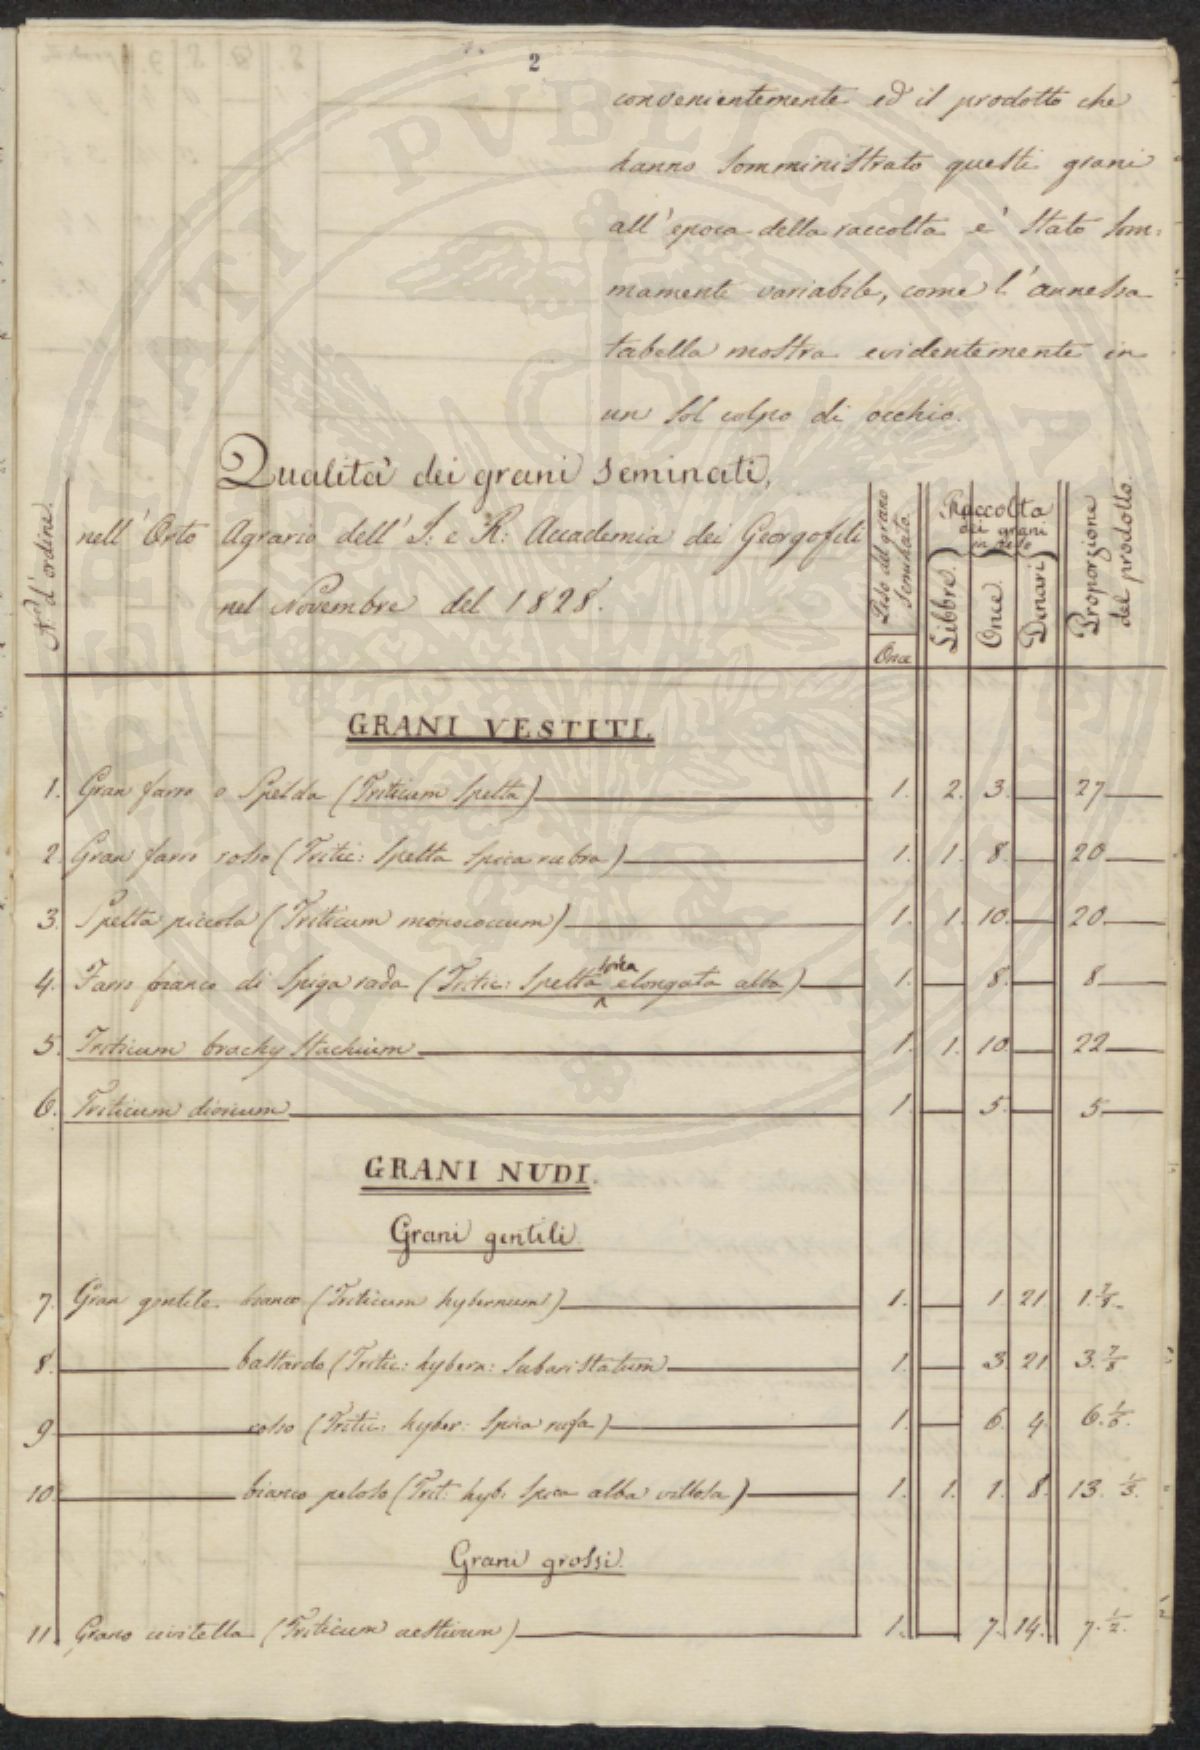 2
convenientemente ed il prodotto che
hanno somministrato questi grani
all'epoca della raccolta e' stato som:
mamente variabile, come l'annessa
tabella mostra evidentemente in
un sol colpo di occhio.
Qualita' dei grani seminati,
nell'Orto Agrario dell'I: e R: Accademia dei Georgofili
nel Novembre del 1828.
N.o d'ordine.
Peso del grano seminato.
Once
Raccolta
dei grani
in peso
Libbre.
Once
Denari
Proporzione
del prodotto.
GRANI VESTITI.
1. Gran farro o Spelda (Triticum Spelta) 1. 2. 3. 27
2. Gran farro rosso (Tritic: Spelta spica rubra) 1. 1. 8. 20
3. Spelta piccola (Triticum monococcum) 1. 1. 10. 20.
4. Farro bianco di spiga rada (Tritic: Spelta spica elongata alba) 1. 8. 8
5. Triticum brachystachium 1. 1. 10. 22
6. Triticum dioicum 1. 5. 5
GRANI NUDI.
Grani gentili.
7. Gran gentile bianco (Triticum hybernum) 1. 1. 21 1. 7/8.
8. bastardo (Tritic: hybern: subaristatum 1. 3. 21 3. 7/8
9 rosso (Tritic: hyber: spica rufa) 1. 6. 4. 6. 1/6.
10. bianco peloso (Trit: hyb: spica alba villosa) 1. 1. 1. 8. 13. 1/3.
Grani grossi.
11. Grano civitella (Triticum aestivum) 1. 7. 14. 7. 1/2.
PERITATI PVBLICAE VTILITATI